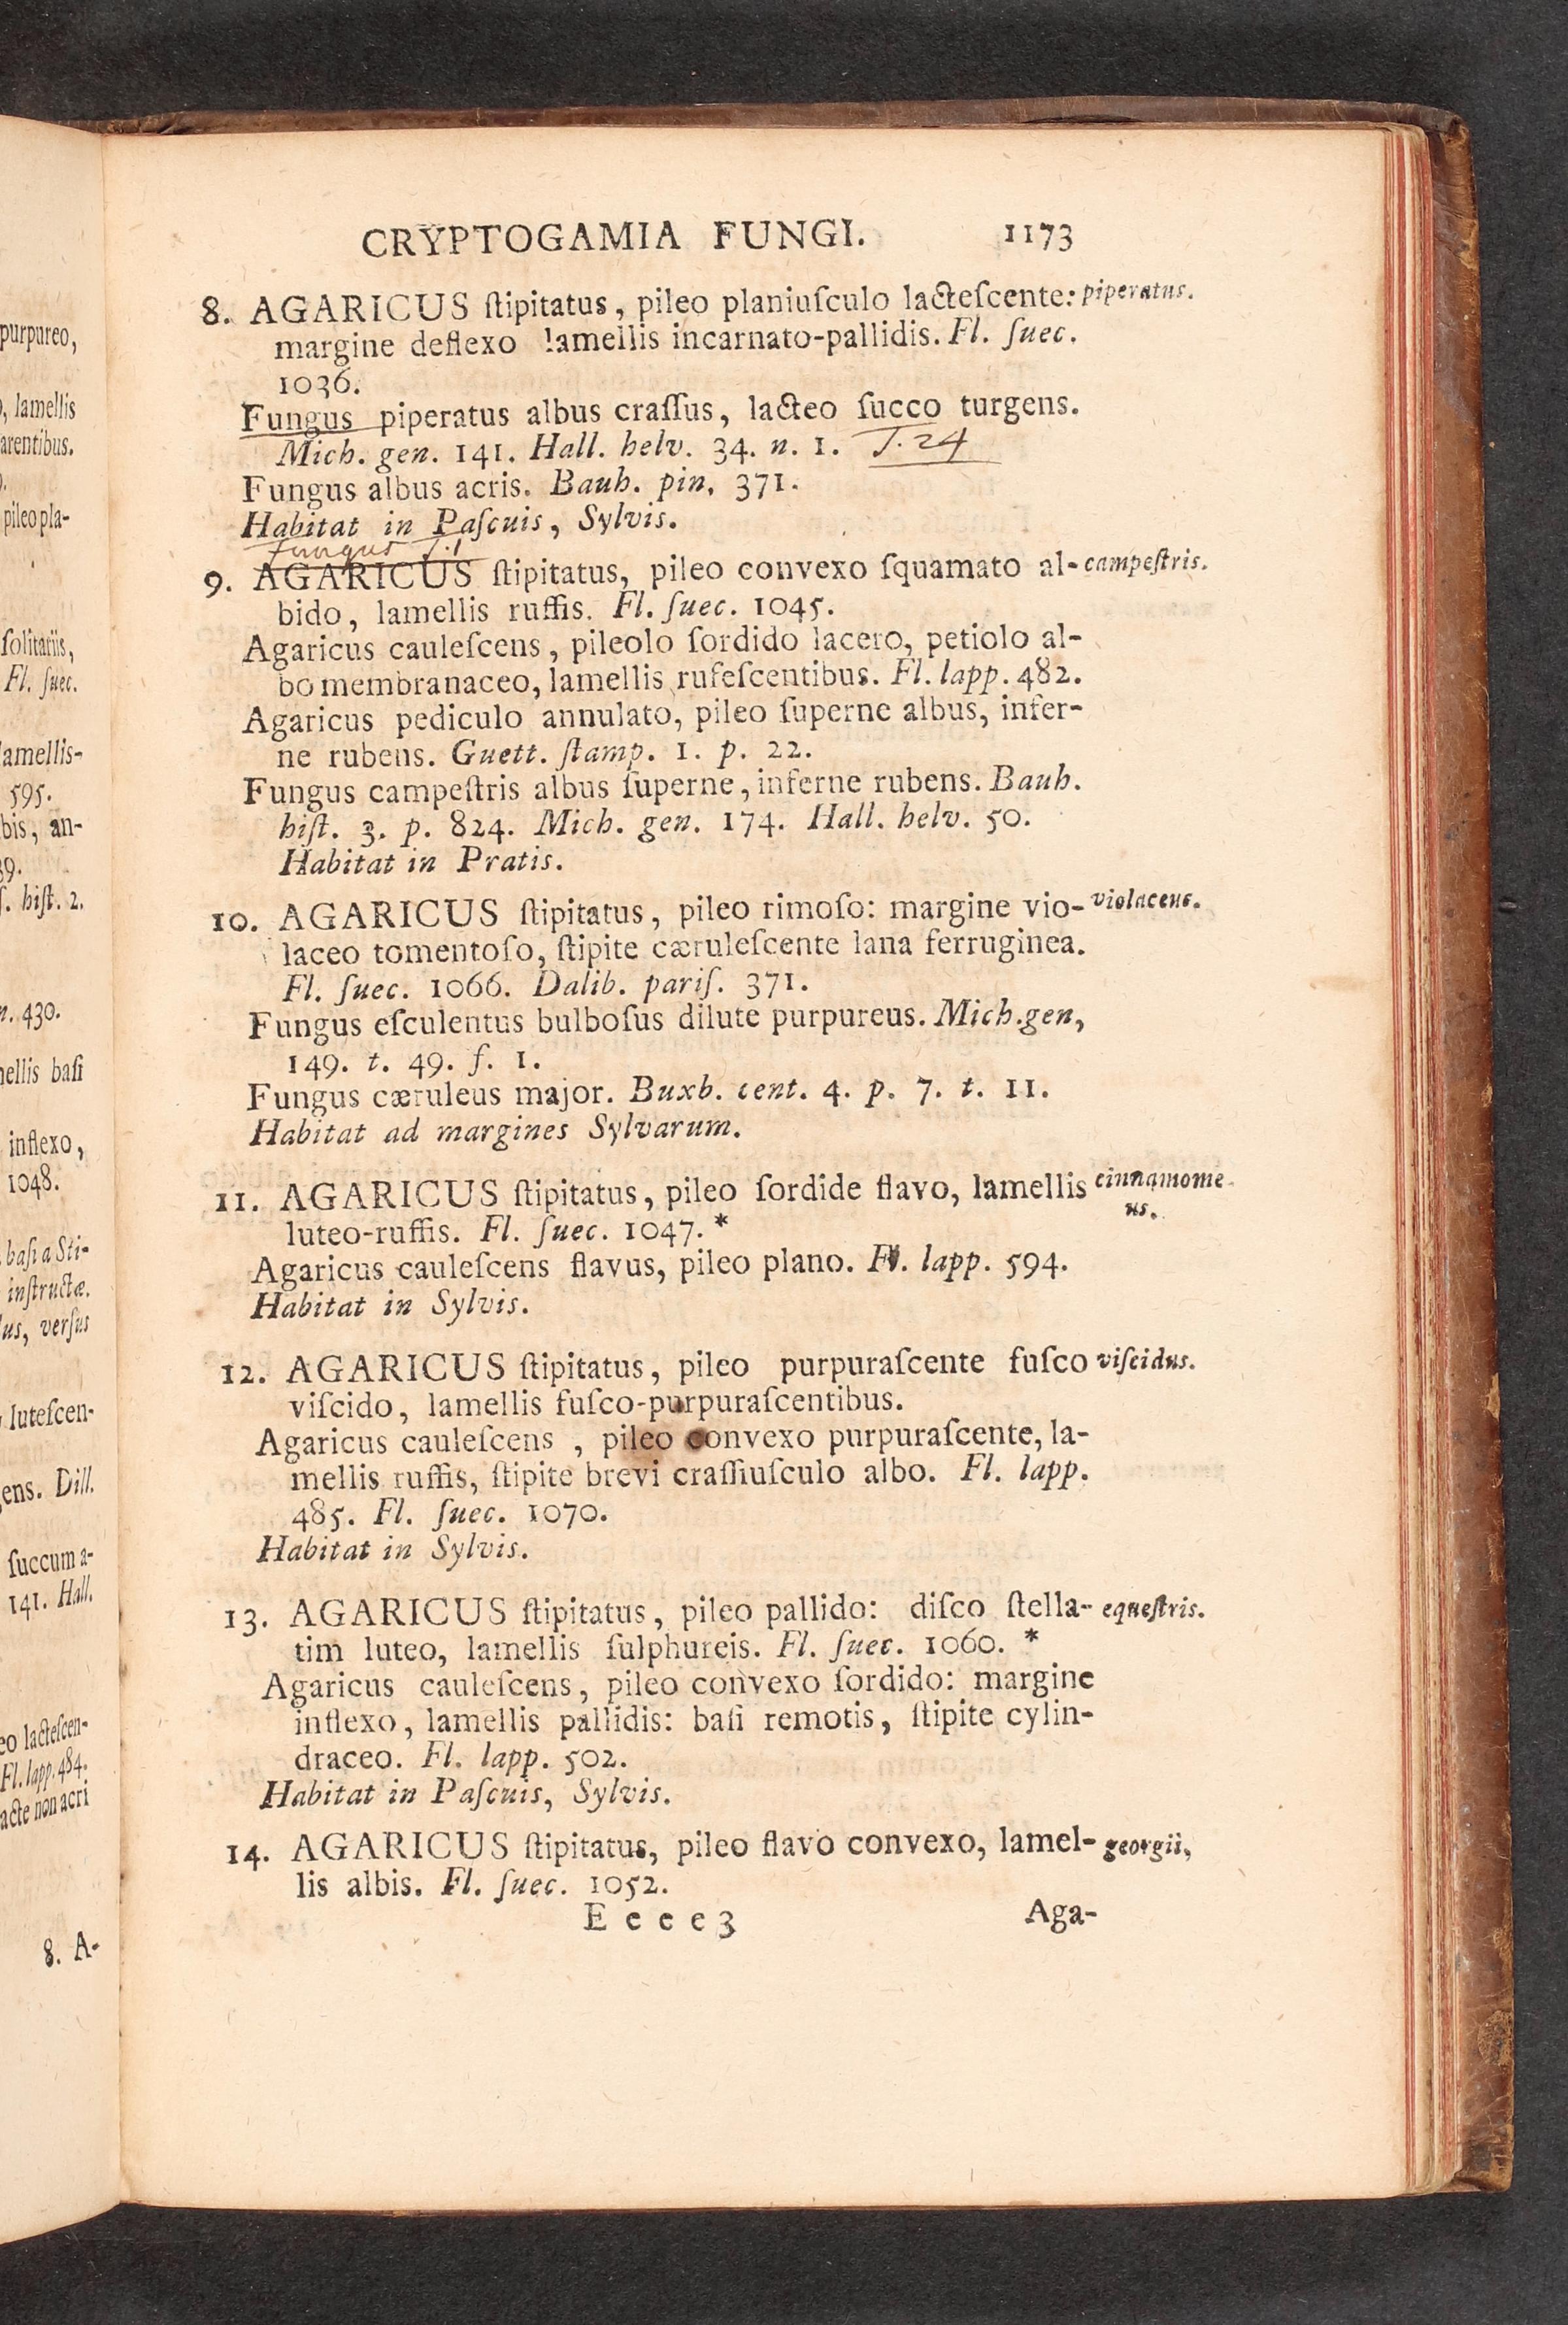 purpureo,
, lamellis
arentibus.
pileo pla-
ſolitariis,
Fl. ſuec.
lamellis-
595.
bis, an-
39.
ſ. hiſt. 2.
n. 430.
nellis baſi
inflexo,
1048.
baſi a Sti-
inſtructæ.
lus, verſus
luteſcen-
gens. Dill.
ſuccum a-
141. Hall.
eo lacteſcen-
Fl. lapp. 484.
acte non acri
8. A-
CRYPTOGAMIA FUNGI. 1173
8. AGARICUS ſtipitatus, pileo planiuſculo lacteſcente: piperatus.
margine deflexo lamellis incarnato-pallidis. Fl. ſuec.
1036.
Fungus piperatus albus craſſus, lacteo ſucco turgens.
Mich. gen. 141. Hall. helv. 34. n. 1. T. 24
Fungus albus acris. Bauh. pin. 371.
Habitat in Paſcuis, Sylvis.
Fungus T.1
9. AGARICUS ſtipitatus, pileo convexo ſquamato al- campeſtris.
bido, lamellis ruffis. Fl. ſuec. 1045.
Agaricus cauleſcens, pileolo ſordido lacero, petiolo al-
bo membranaceo, lamellis rufeſcentibus. Fl. lapp. 482.
Agaricus pediculo annulato, pileo ſuperne albus, infer-
ne rubens. Guett. ſtamp. 1. p. 22.
Fungus campeſtris albus ſuperne, inferne rubens. Bauh.
hiſt. 3. p. 824. Mich. gen. 174. Hall. helv. 50.
Habitat in Pratis.
10. AGARICUS ſtipitatus, pileo rimoſo: margine vio- violaceus.
laceo tomentoſo, ſtipite cæruleſcente lana ferruginea.
Fl. ſuec. 1066. Dalib. pariſ. 371.
Fungus eſculentus bulboſus dilute purpureus. Mich. gen,
149. t. 49. f. 1.
Fungus cæruleus major. Buxb. cent. 4. p. 7. t. 11.
Habitat ad margines Sylvarum.
11. AGARICUS ſtipitatus, pileo ſordide flavo, lamellis cinnamome-
us.
luteo-ruffis. Fl. ſuec. 1047. *
Agaricus cauleſcens flavus, pileo plano. Fl. lapp. 594.
Habitat in Sylvis.
12. AGARICUS ſtipitatus, pileo purpuraſcente fuſco viſcidus.
viſcido, lamellis fuſco-purpuraſcentibus.
Agaricus cauleſcens , pileo convexo purpuraſcente, la-
mellis ruffis, ſtipite brevi craſſiuſculo albo. Fl. lapp.
485. Fl. ſuec. 1070.
Habitat in Sylvis.
13. AGARICUS ſtipitatus, pileo pallido: diſco ſtella- equeſtris.
tim luteo, lamellis ſulphureis. Fl. ſuec. 1060. *
Agaricus cauleſcens, pileo convexo ſordido: margine
inflexo, lamellis pallidis: baſi remotis, ſtipite cylin-
draceo. Fl. lapp. 502.
Habitat in Paſcuis, Sylvis.
14. AGARICUS ſtipitatus, pileo flavo convexo, lamel- georgii,
lis albis. Fl. ſuec. 1052.
E e e e 3 Aga-